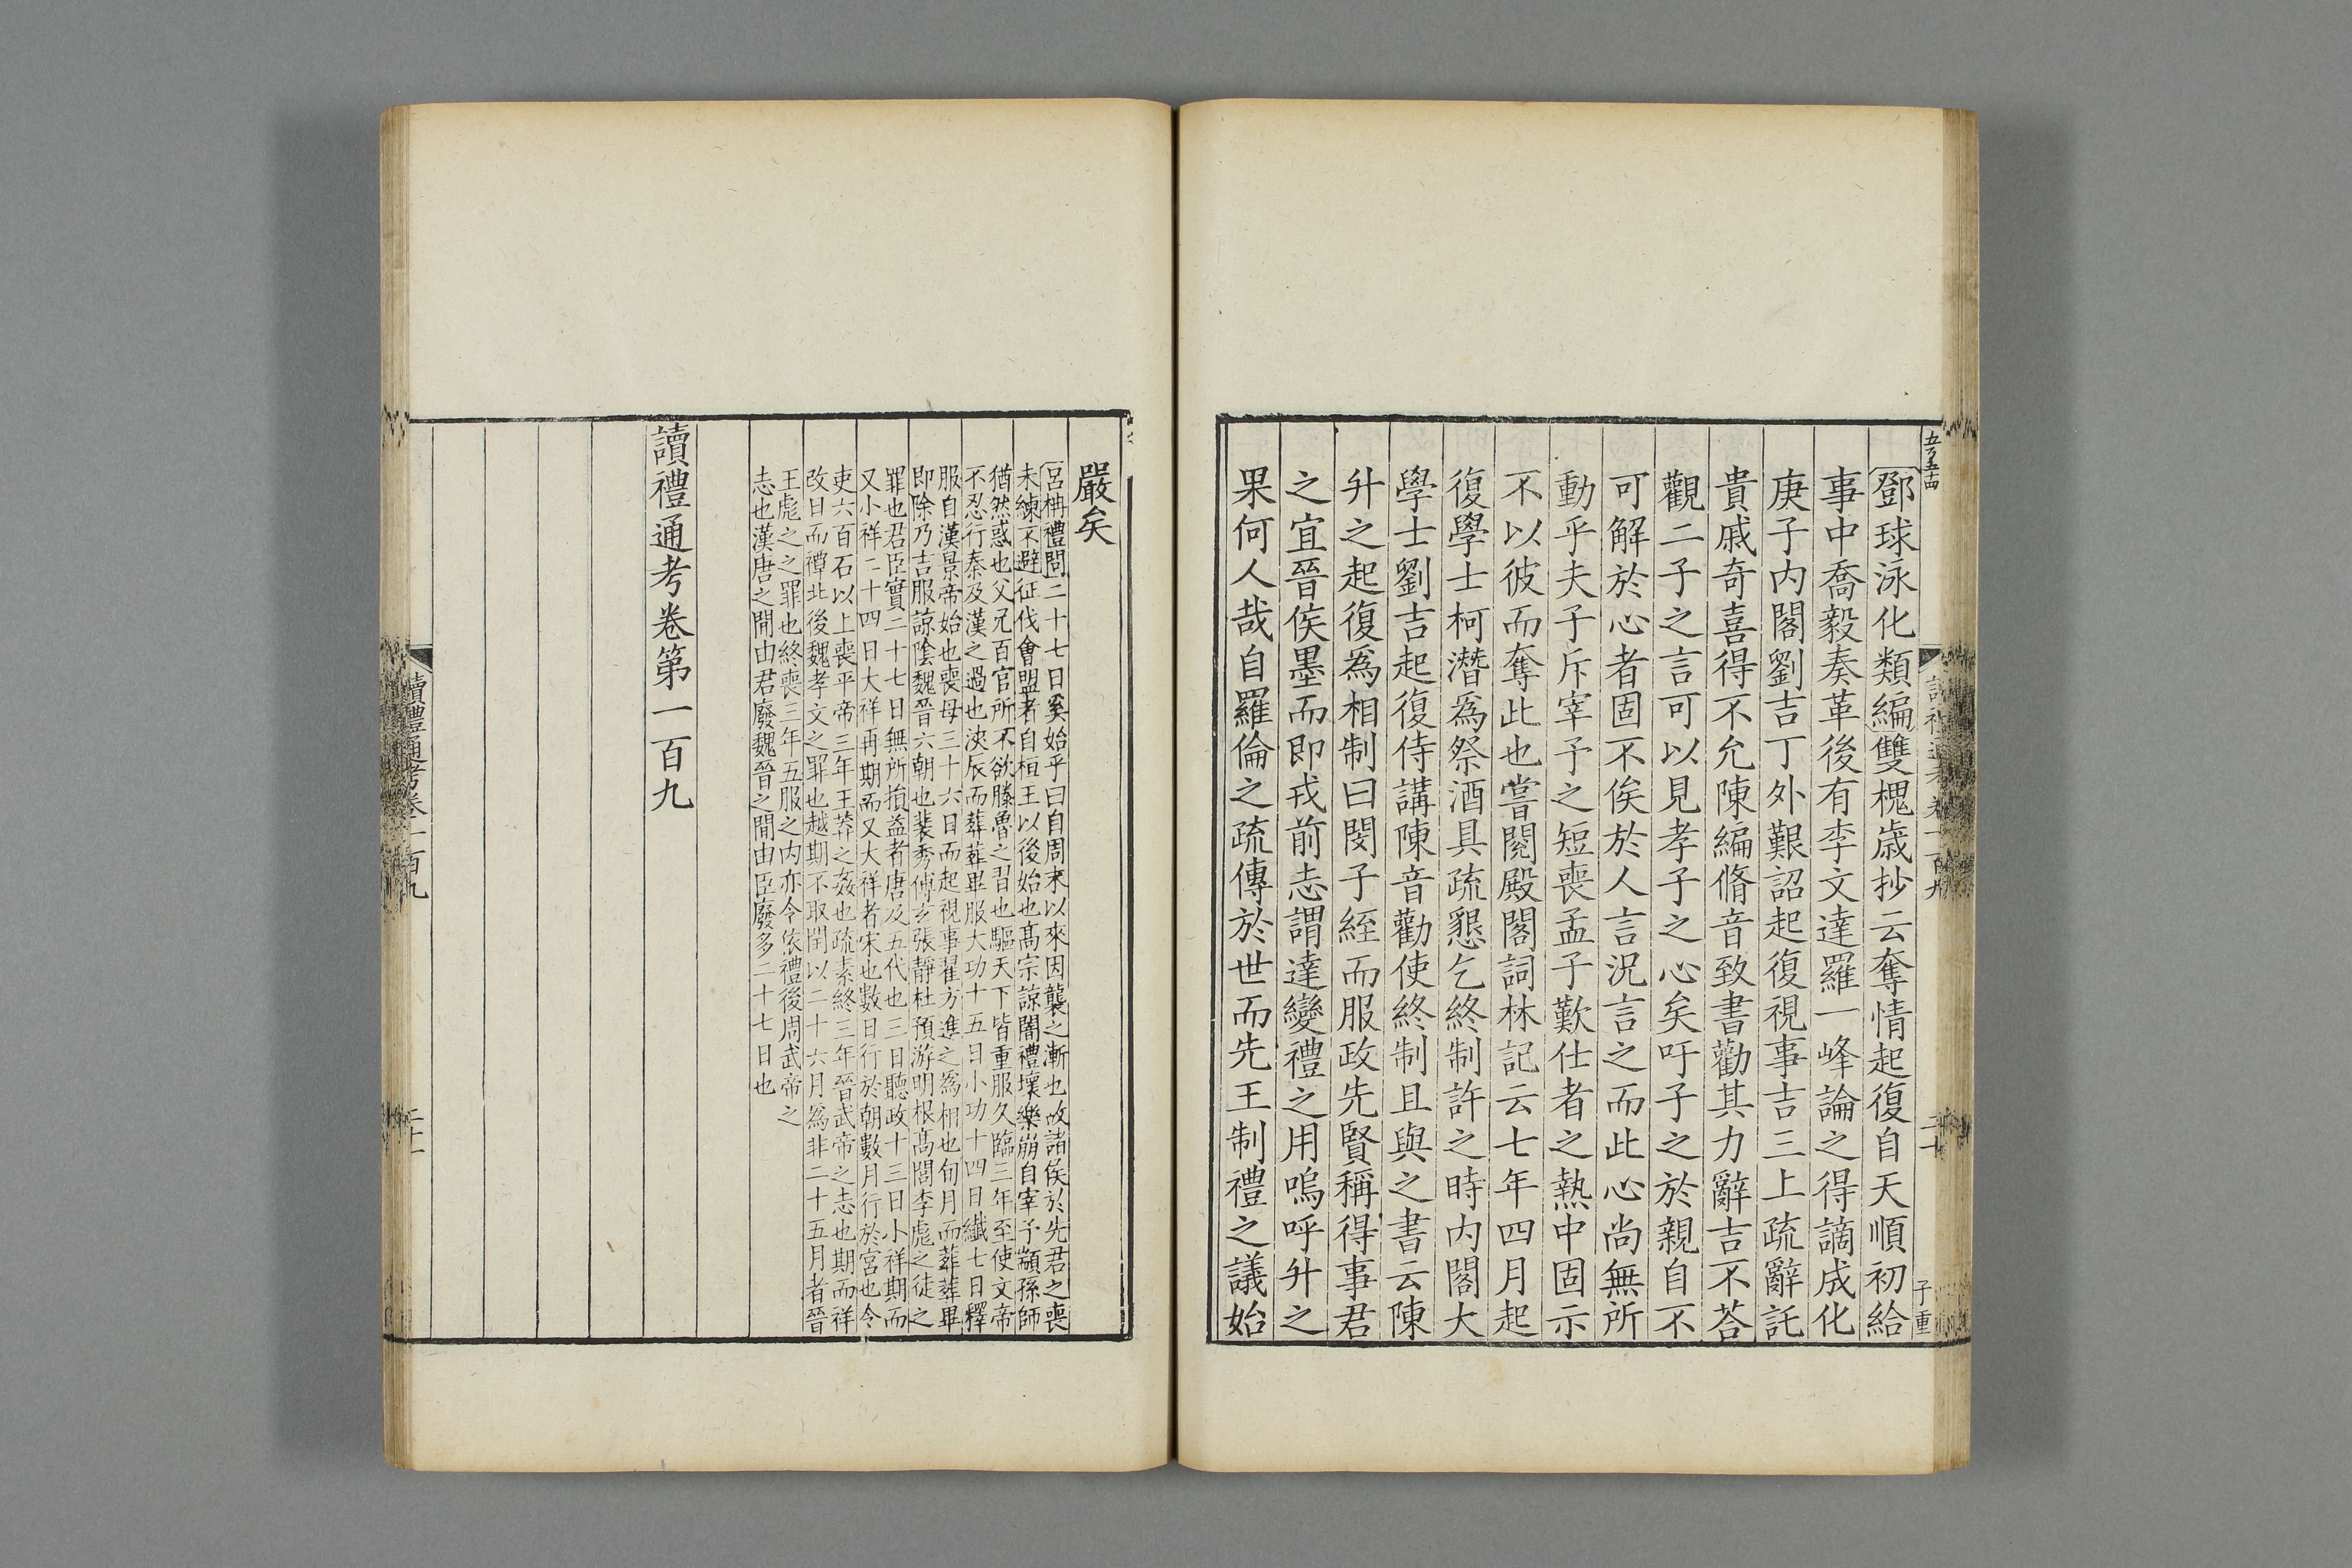 鄧球泳化類編雙槐歲抄云奪情起復自天順初給
事中喬毅奏革後有李文達羅一峰論之得謫成化
庚子内閣劉吉丁外艱詔起復視事吉三上疏辭託
貴戚奇喜得不允陳編脩音致書勸其力辭吉不荅
觀二子之言可以見孝子之心矣吁子之於親自不
可解於心者固不俟於人言况言之而此心尚無所
動乎夫子斥宰予之短喪孟子歎仕者之熱中固示
不以彼而奪此也嘗閱殿閣詞林記云七年四月起
復學士柯潛爲祭酒具疏懇乞終制許之時内閣大
學士劉吉起復侍講陳音勸使終制且與之書云陳
升之起復爲相制曰閔子絰而服政先賢稱得事君
之宜晉侯墨而即戎前志謂達變禮之用嗚呼升之
果何人哉自羅倫之疏傳於世而先王制禮之議始
讀禮通考卷一百九
二十
子重
嚴矣
呂柟禮問二十七日奚始乎曰自周末以來因襲之漸也故諸侯於先君之喪
未練不避征伐會盟者自桓王以後始也髙宗諒闇禮壞樂崩自宰予顓孫師
猶然惑也父兄百官所不欲滕魯之習也驅天下皆重服久臨三年至使文帝
不忍行秦及漢之過也浹辰而葬葬畢服大功十五日小功十四日纖七日釋
服自漢景帝始也喪母三十六日而起視事翟方進之爲相也旬月而葬葬畢
即除乃吉服諒陰魏晉六朝也裴秀傅玄張靜杜預游明根髙閭李彪之徒之
罪也君臣實二十七日無所損益者唐及五代也三日聽政十三日小祥期而
又小祥二十四日大祥再期而又大祥者宋也數日行於朝數月行於宮也令
吏六百石以上喪平帝三年王莽之姦也疏素終三年晉武帝之志也期而祥
改日而禫北後魏孝文之罪也越期不取閏以二十六月爲非二十五月者晉
王彪之之罪也終喪三年五服之内亦令依禮後周武帝之
志也漢唐之間由君廢魏晉之間由臣廢多二十七日也
讀禮通考卷第一百九
讀禮通考卷一百九
二十一